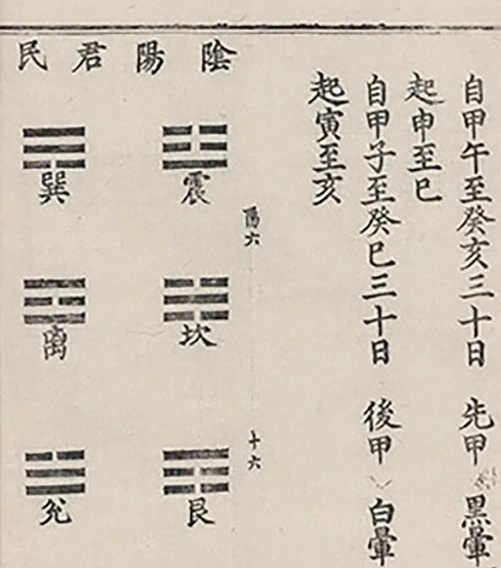 自甲午至癸亥三十日 先甲 黑暈
起申至巳
自甲子至癸巳三十日 後甲 白暈
起寅至亥
陰陽君民
震
陽六
坎
十六
艮
巽
离
兌